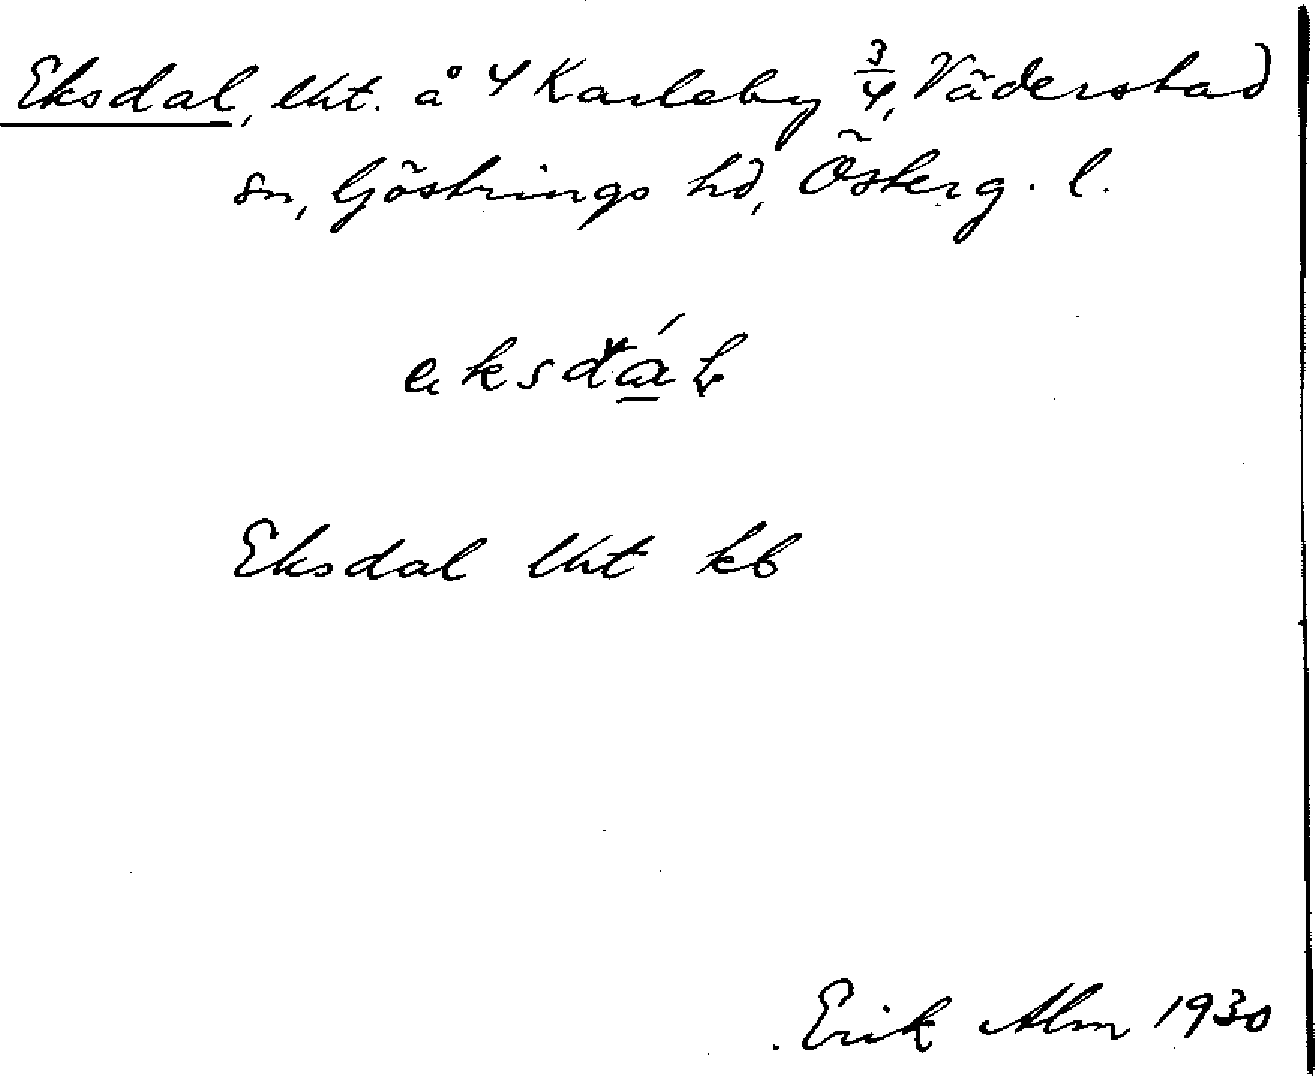 Eksdal, lht. å 4 Karleby 3/4, Väderstad
sn, Göstrings hd, Österg. l.
eksdál
Eksdal lht kb
Erik Alm 1930